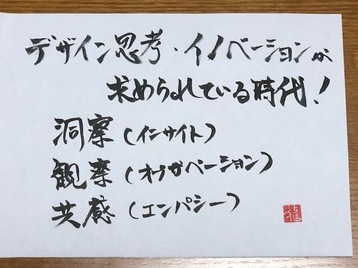 デザイン思考・イノベーションが
求められている時代！
洞察（インサイト）
観察（オブザベーション）
共感（エンパシー）